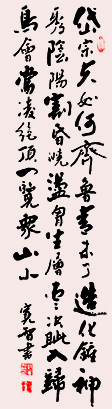 岱宗夫如何齊魯青未了造化鍾神
秀陰陽割昏曉盪胷生層云决眦入歸
鳥會當凌絕頂一覽衆山小